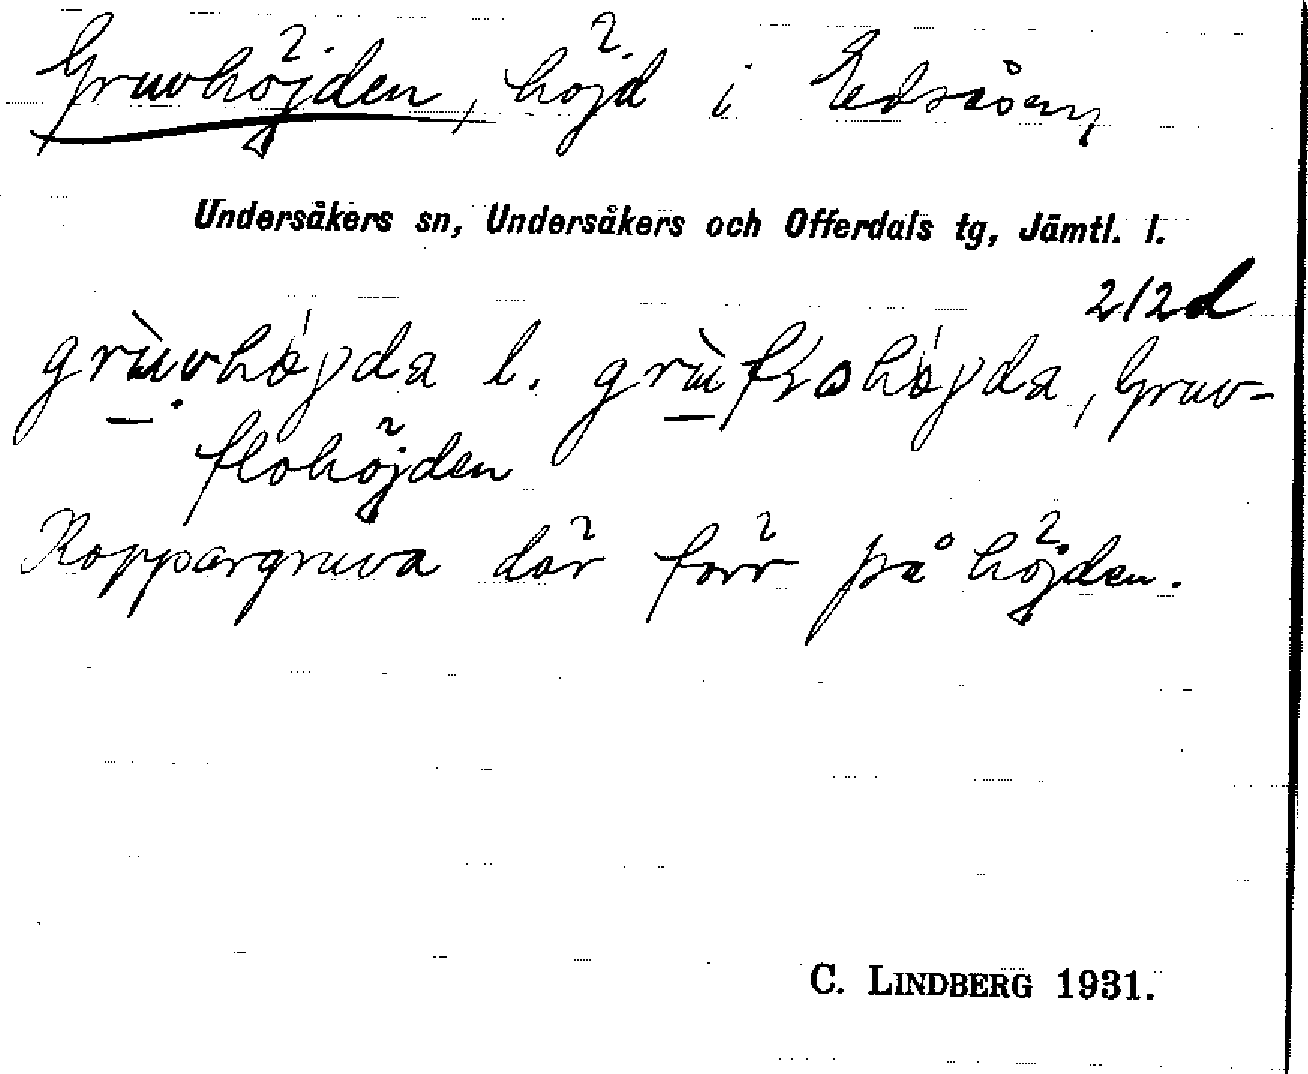 Gruvhöjden, höjd i Edsåsen
Undersåkers sn, Undersåkers och Offerdals tg, Jämtl. l.
212d
grùvhø̀jda l. grùfłohø̀jda, Gruv-
flohöjden
Koppargruva där förr på höjden.
C. LINDBERG 1931.